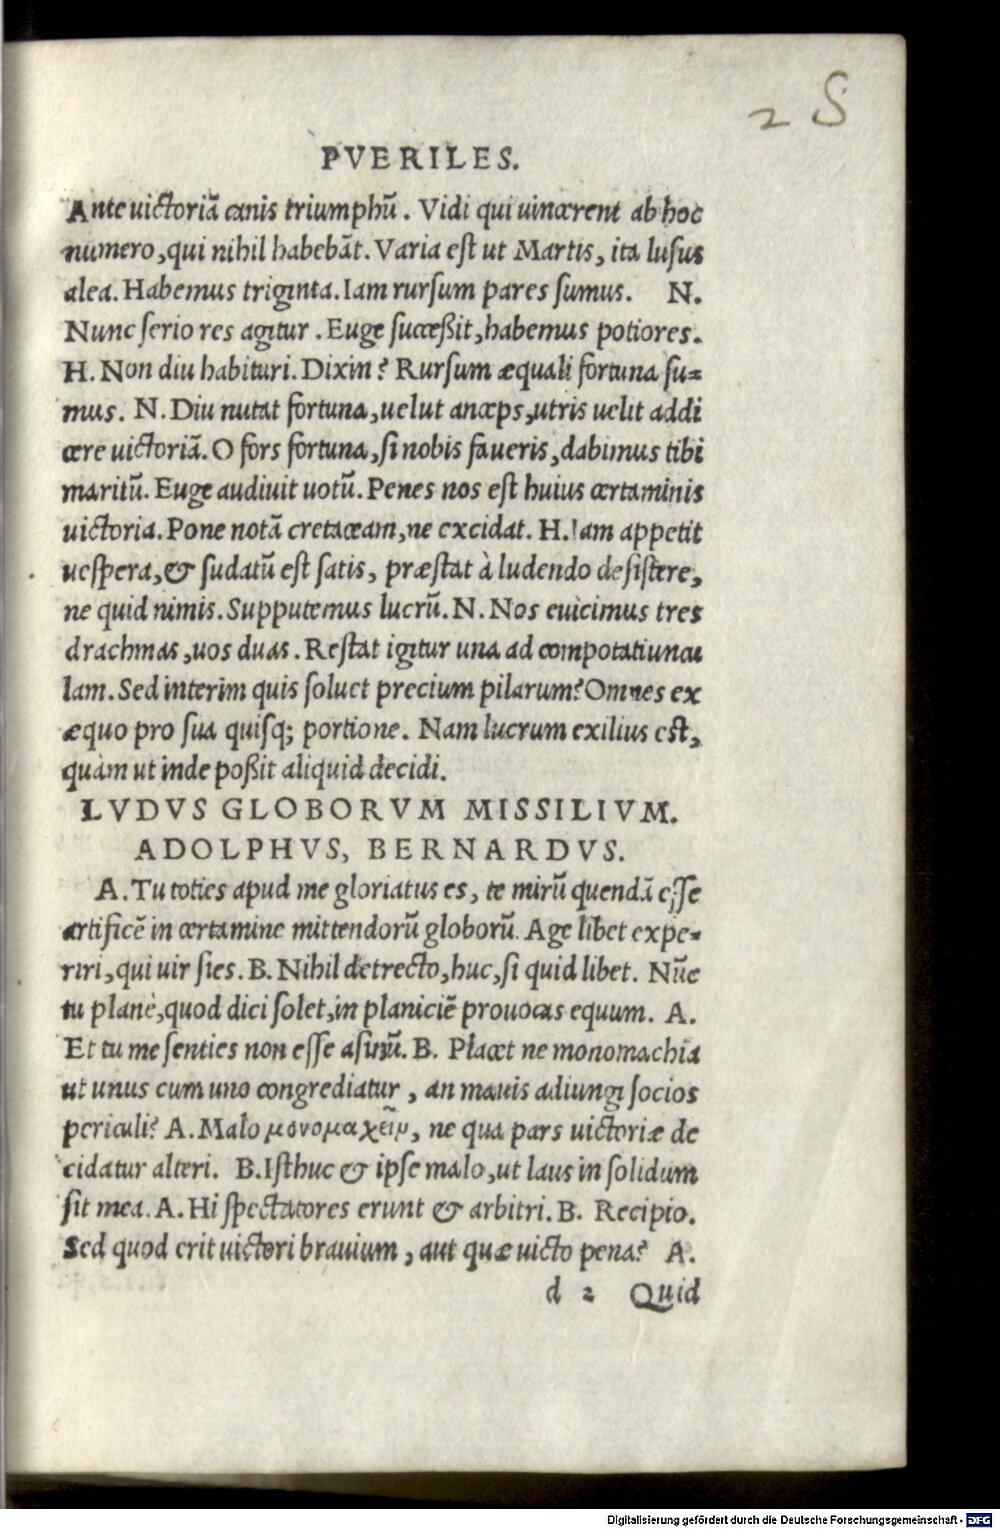 2 S
PVERILES.
Ante uictoriã canis triumphũ. Vidi qui uincerent ab hoc
numero, qui nihil habebãt. Varia est ut Martis, ita lusus
alea. Habemus triginta. Iam rursum pares sumus. N.
Nunc serio res agitur. Euge successit, habemus potiores.
H. Non diu habituri. Dixin? Rursum æquali fortuna su=
mus. N. Diu nutat fortuna, uelut anceps, utris uelit addi
cere uictoriã. O fors fortuna, si nobis faueris, dabimus tibi
maritũ. Euge audiuit uotũ. Penes nos est huius certaminis
uictoria. Pone notã cretaceam, ne excidat. H. Iam appetit
uespera, & sudatũ est satis, præstat à ludendo desistere,
ne quid nimis. Supputemus lucrũ. N. Nos euicimus tres
drachmas, uos duas. Restat igitur una ad compotatiuncu
lam. Sed interim quis soluet precium pilarum? Omnes ex
æquo pro sua quisq; portione. Nam lucrum exilius est,
quàm ut inde possit aliquid decidi.
LVDVS GLOBORVM MISSILIVM.
ADOLPHVS, BERNARDVS.
A. Tu toties apud me gloriatus es, te mirũ quendã esse
artificẽ in certamine mittendorũ globorũ. Age libet expe=
riri, qui uir sies. B. Nihil detrecto, huc, si quid libet. Nũc
tu planè, quod dici solet, in planiciẽ prouocas equum. A.
Et tu me senties non esse asinũ. B. Placet ne monomachia
ut unus cum uno congrediatur, an mauis adiungi socios
periculi? A. Malo μονομαχεῖν, ne qua pars uictoriæ de
cidatur alteri. B. Isthuc & ipse malo, ut laus in solidum
sit mea. A. Hi spectatores erunt & arbitri. B. Recipio.
Sed quod erit uictori brauium, aut quæ uicto pena? A.
d 2 Quid
Digitalisierung gefördert durch die Deutsche Forschungsgemeinschaft - DFG